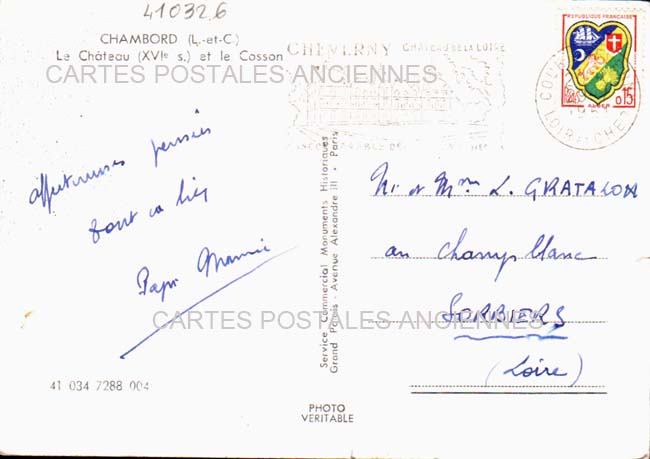 410326
CHAMBORD (L.-et-C.)
Le Château (XVIe s.) et le Cosson
CARTES POSTALES ANCIENNES
CHEVERNY CHATEAU DE LA LOIRE
REPUBLIQUE FRANÇAISE
0,15
ALGER
LOIR-ET-CHER
affectueuses pensées
Papi Mamie
Service Commercial Monuments Historiques
Grand Palais Avenue Alexandre III - Paris
Mr et Mme L. GRATALON
au Champ blanc
SORBIERS
(Loire)
CARTES POSTALES ANCIENNES
41 034 7288 004
PHOTO
VERITABLE